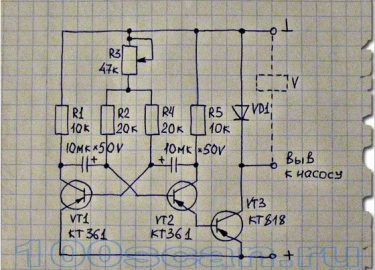 ⊥
R3
47к
V
R1
10к
R2
20к
R4
20к
R5
10к
VD1
10мк×50V
+
10мк×50V
+
ВЫВ
К НАСОСУ
VT1
КТ361
VT2
КТ361
VT3
КТ818
+
100scan.ru